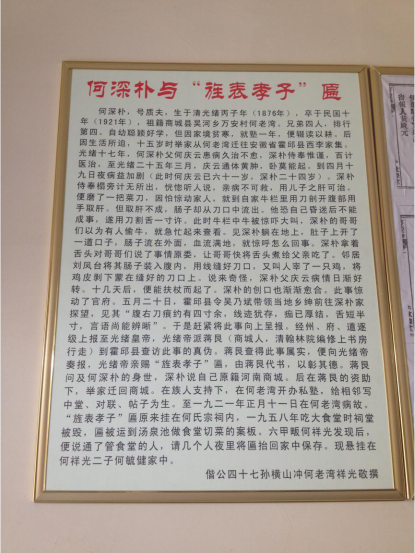 何深朴与“旌表孝子”匾
何深朴，号质夫，生于清光绪丙子年（1876年），卒于民国十
年（1921年），祖籍商城县吴河乡万安村何老湾，兄弟四人，排行
第四。自幼聪颖好学，但因家境贫寒，就塾一年，便辍读以耕。后
因生活所迫，十五岁时举家从何老湾迁往安徽省霍邱县西李家集。
光绪十七年，何深朴父何庆云患病久治不愈，深朴侍奉惟谨，百计
医治，至光绪二十五年三月，庆云通体黄肿，卧莫能起，到四月十
九日夜病益加剧（此时何庆云已六十一岁，深朴二十四岁）。深朴
侍奉榻旁计无所出，恍惚听人说，亲病不可救，用儿子之肝可治。
便磨了一把菜刀，因怕惊动家人，就到自家牛栏里用刀剖开腹部用
手取肝。但取肝不成，肠子却从刀口中流出。他恐自己昏迷后不能
成事，遂用刀割舌一寸许。此时牛栏中牛被惊吓大叫，深朴的哥哥
们以为有人偷牛，就急忙起来查看。见深朴躺在地上，肚子上开了
一道口子，肠子流在外面，血流满地，就惊呼怎么回事，深朴拿着
舌头对哥哥们说了事情原委，让哥哥快将舌头煮给父亲吃了。邻居
刘凤台将其肠子装入腹内，用线缝好刀口，又叫人宰了一只鸡，将
鸡皮剥下蒙在缝好的刀口上。说来奇怪，深朴父庆云病情日渐好
转。十几天后，便能扶杖而起了。深朴的创口也渐渐愈合。此事惊
动了官府。五月二十日，霍邱县令吴乃斌带领当地乡绅前往深朴家
探望，见其“腹右刀痕约有四寸余，线迹犹存，痂已厚结，舌短半
寸，言语尚能辨晰”。于是赶紧将此事向上呈报。经州、府、道逐
级上报至光绪皇帝，光绪帝派蒋艮（商城人，清翰林院编修上书房
行走）到霍邱县查访此事的真伪。蒋艮查得此事属实，便向光绪帝
奏报，光绪帝亲赐“旌表孝子”匾，由蒋艮代书，以彰其德。蒋艮
问及何深朴的身世，深朴说自己原籍河南商城。后在蒋艮的资助
下，举家迁回商城。在族人支持下，在何老湾开办私塾，给相邻写
中堂、对联、帖子为生。至一九二一年正月十一日在何老湾病故。
“旌表孝子”匾原来挂在何氏宗祠内，一九五八年吃大食堂时祠堂
被毁，匾被运到汤泉池做食堂切菜的案板。六甲畈何祥光发现后，
便说通了管食堂的人，请几个人夜里将匾抬回家中保存。现悬挂在
何祥光二子何毓健家中。
偕公四十七孙横山冲何老湾祥光敬撰